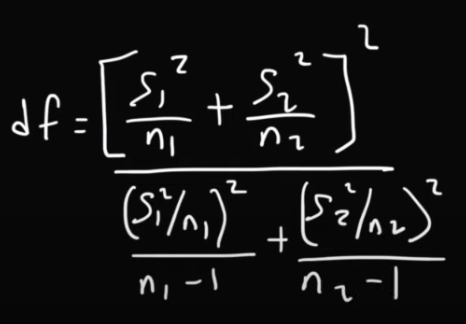 df = [ S₁²/n₁ + S₂²/n₂ ]²
(S₁²/n₁)² / n₁ - 1 + (S₂²/n₂)² / n₂ - 1